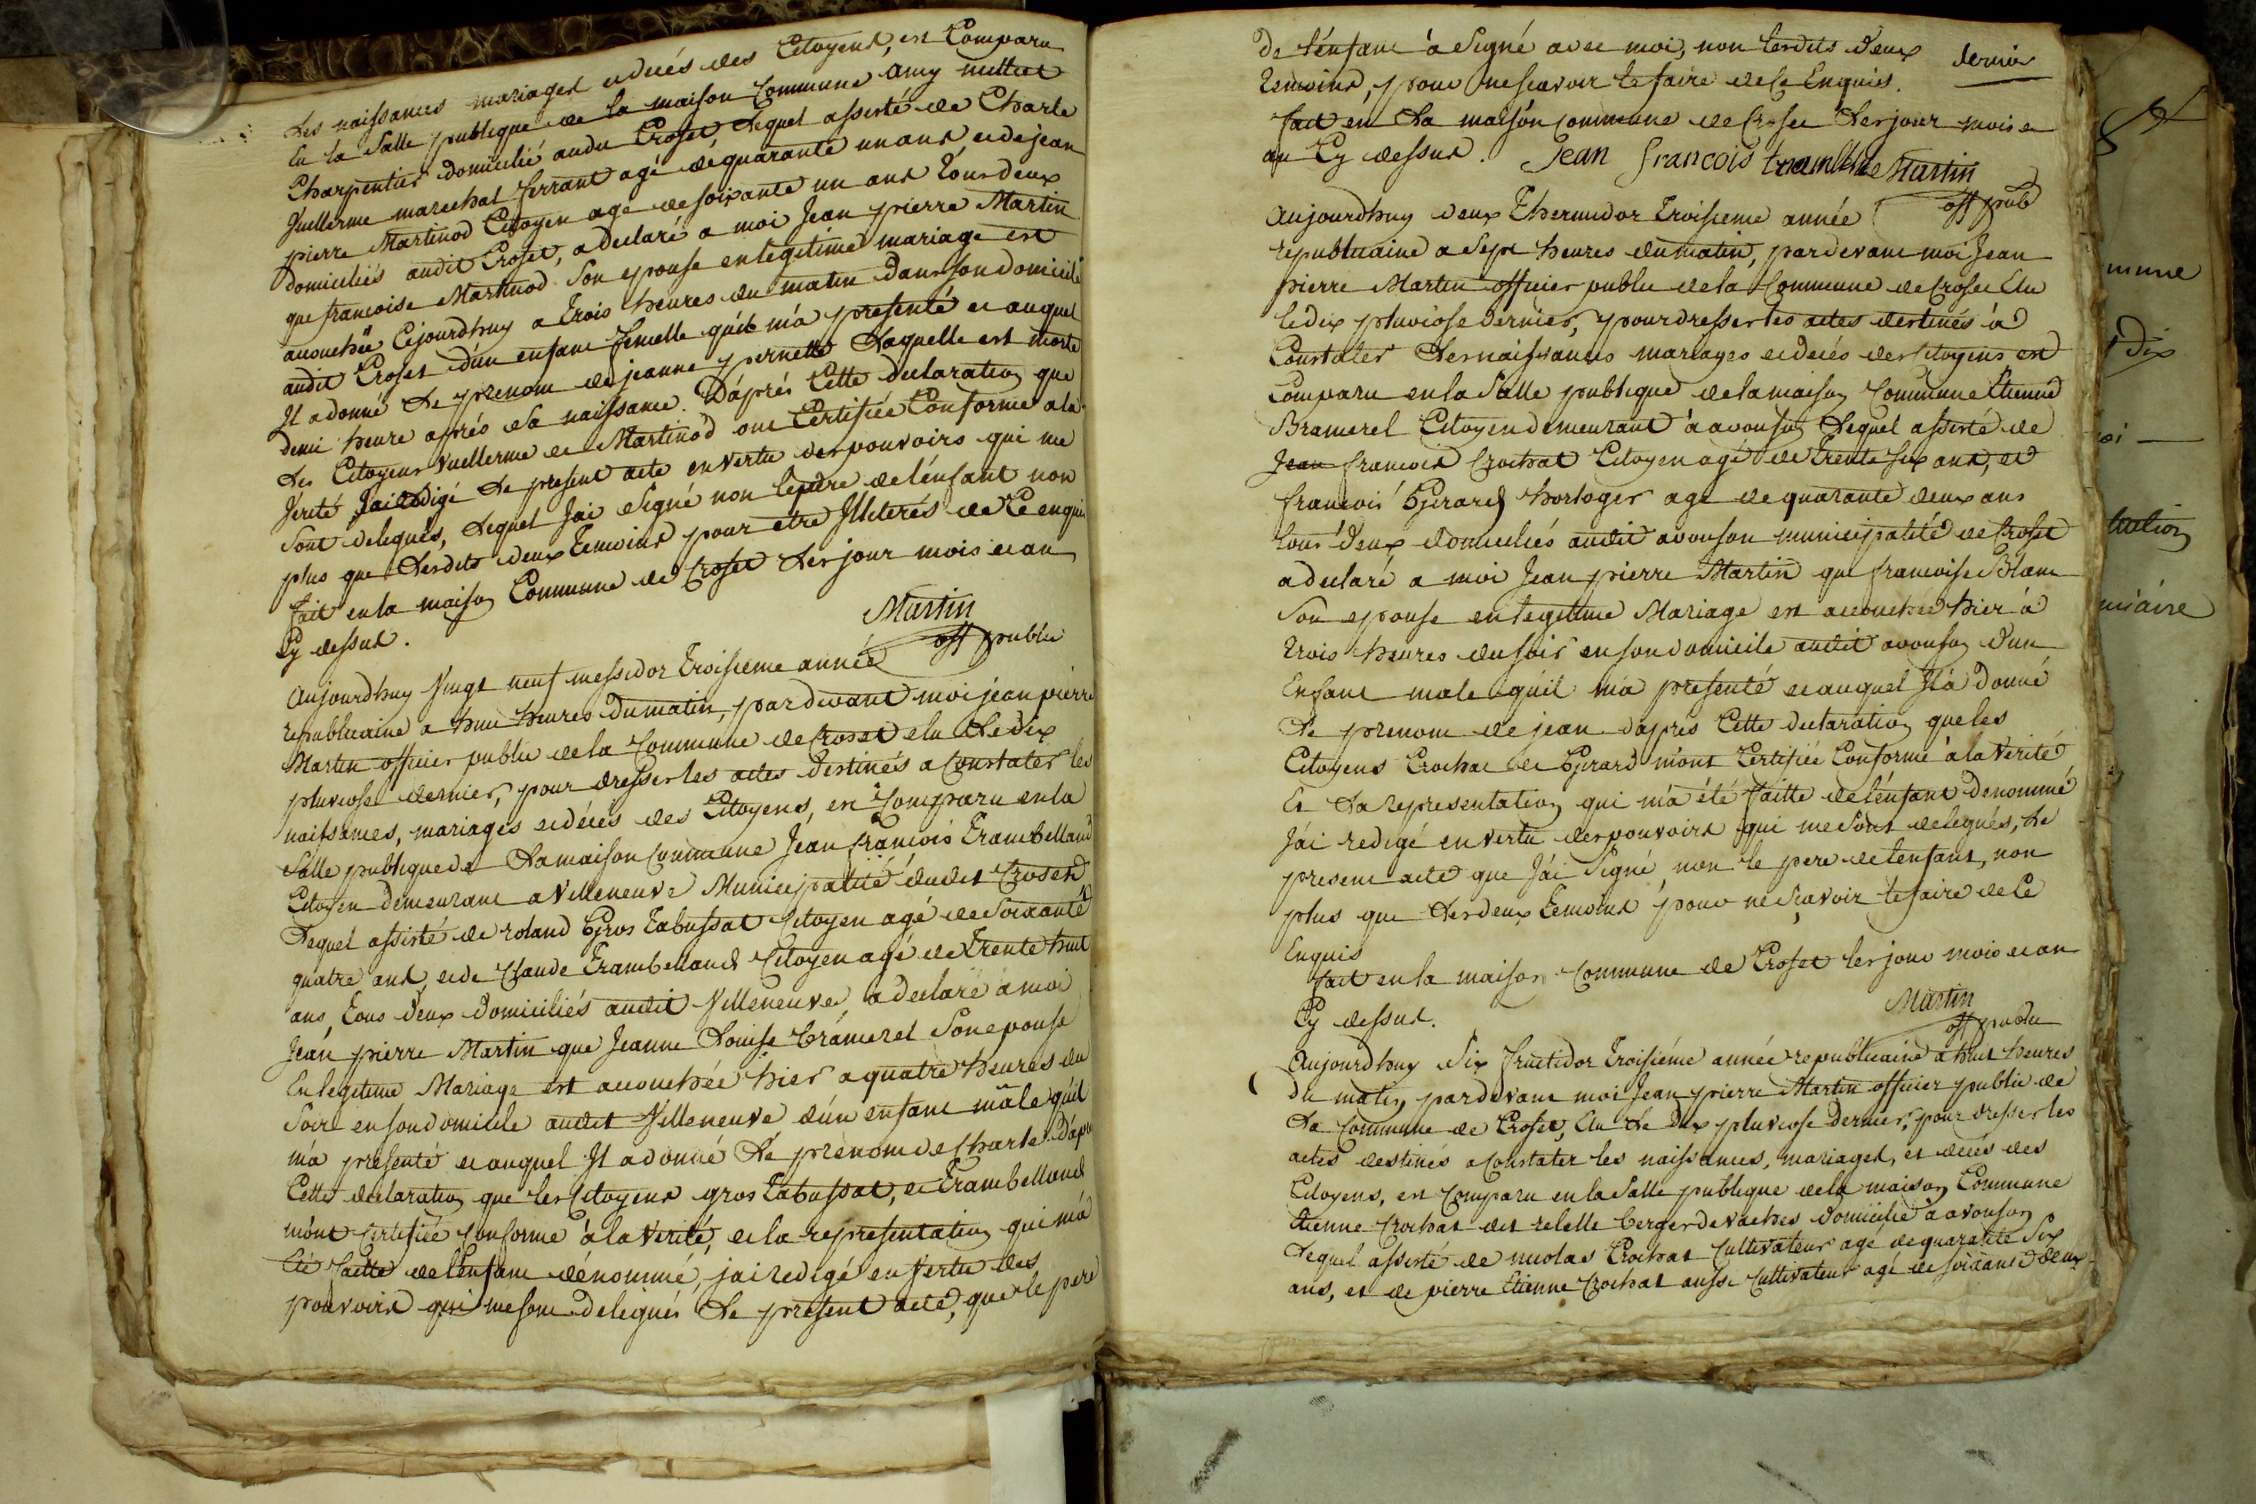 Les naissances mariages et decés des Citoyens, est Comparu
En la Salle publique de la maison Commune Amy
Charpentier domicilié audit Croset Lequel assisté de Charle
Vuillerme marechal ferrant agé de quarante un ans et de jean
pierre Martinod Citoyen agé de soixante un ans Tous deux
domiciliés audit Croset, a declaré a moi Jean pierre Martin
que francoise Martinod Son epouse en legitime mariage est
accouchée Cejourdhuy a Trois heures du matin dans son domicile
audit Croset d'un enfant femelle qu'il m'a presenté et auquel
Il a donné Le prenom de jeanne pernette Laquelle est morte
demi heure aprés Sa naissance. D'aprés Cette declaration que
Les Citoyens Vuillerme et Martinod ont Certifiée Conforme a la
Verité J'ai redigé Le present acte en vertu des pouvoirs qui me
Sont delegués, Lequel J'ai Signé non le pere de l'enfant non
plus que Lesdits deux Temoins pour etre Illiterés de Ce enquis
fait en la maison Commune de Croset Les jour mois et an
Cy dessus.
Martin
off public
Aujourdhuy Vingt neuf messidor Troisieme année
republicaine a huit heures du matin, pardevant moi jean pierre
Martin officier public de la Commune de Croset elu Le dix
pluviose dernier, pour dresser les actes destinés a Constater les
naissances, mariages et decés des Citoyens, est Comparu en la
Salle publique de La maison Commune Jean françois Trambelland
Citoyen demeurant a Villeneuve Municipalité dudit Croset
Lequel assisté de roland Gros Tabussat Citoyen agé de Soixante
quatre ans, et de Claude Trambelland Citoyen agé de Trente huit
ans, Tous deux domiciliés audit Villeneuve, a declaré à moi
Jean pierre Martin que Jeanne Louise Bramerel Son epouse
En legitime Mariage est accouchée hier a quatre heures du
Soir en son domicile audit Villeneuve d'un enfant mâle qu'il
m'a presenté et auquel Il a donné Le prenom de Charle. D'après
Cette declaration que les Citoyens gros Tabussat, et Trambelland
m'ont Certifiée Conforme à la Verité, et la representation qui m'a
été faitte de l'enfant dénommé, j'ai redigé en Vertu des
pouvoirs qui me sont delegués Le present acte, que le pere
de l'enfant à Signé avec moi, non lesdits deux
Temoins, pour ne scavoir le faire de Ce Enquis.
dernier
fait en La maison Commune de Croset Les jour mois et
an Cy dessus. Jean francois Martin
off pub
Aujourdhuy deux Thermidor Troisieme année
republicaine a Sept heures du matin, pardevant moi Jean
pierre Martin officier public de la Commune de Croset Elu
le dix pluviose dernier, pour dresser les actes destinés à
Constater Les naissances mariages et decés des Citoyens est
Comparu en la Salle publique de la maison Commune Etienne
Bramerel Citoyen demeurant à avouson Lequel assisté de
Jean francois Crochat Citoyen agé de Trente six ans, et
françois Girard horloger agé de quarante deux ans
Tous deux domiciliés audit avouson municipalité de Croset
a declaré a moi Jean pierre Martin que francoise Blanc
Son epouse en legitime Mariage est accouchée hier à
Trois heures du soir en son domicile audit avouson d'un
Enfant male qu'il m'a presenté et auquel Il a donné
Le prenom de jean d'apres Cette declaration que les
Citoyens Crochat et Girard m'ont Certifiée Conforme à la Verité
Et La representation qui m'a été faitte de l'enfant denommé
J'ai redigé en vertu des pouvoirs qui me sont delegués, Le
present acte que J'ai Signé, non le pere de l'enfant, non
plus que Les deux Temoins pour ne Sçavoir le faire de Ce
Enquis
fait en la maison Commune de Croset les jour mois et an
Cy dessus.
Martin
off public
Aujourdhuy Six fructidor Troisiéme année republicaine a huit heures
du matin, pardevant moi Jean pierre Martin officier public de
La Commune de Croset, Elu Le Dix pluviose dernier, pour dresser les
actes destinés a Constater les naissances, mariages, et décés des
Citoyens, est Comparu en la Salle publique de la maison Commune
Etienne Crochat dit Berger de vaches domicilié à avouson
Lequel assisté de nicolas Crochat Cultivateur agé de quarante Six
ans, et de pierre Etienne Crochat aussi Cultivateur agé de soixante deux